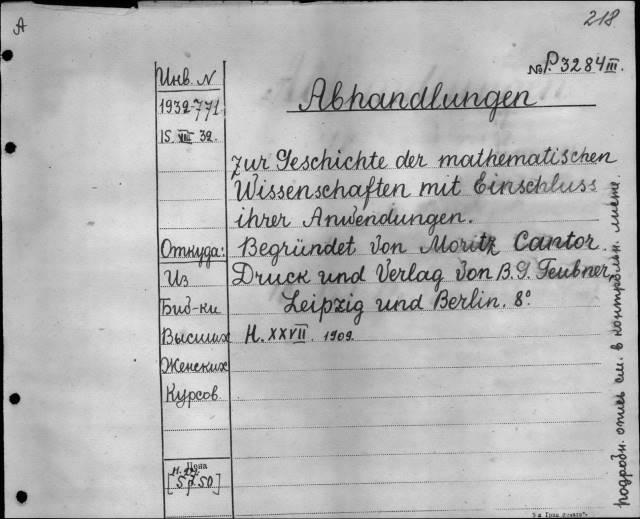 А
218
№ Р. 3284 III.
Инв. N
1932-771
15. VIII 32.
Abhandlungen
zur Geschichte der mathematischen
Wissenschaften mit Einschluss
ihrer Anwendungen.
Begründet von Moritz Cantor.
Druck und Verlag von B.G. Teubner,
Leipzig und Berlin. 8°
H. XXVII. 1909.
Откуда:
Из
Биб-ки
Высших
Женских
Курсов.
Цена
[57.50]
подробн. опись см. в контрольн. листе.